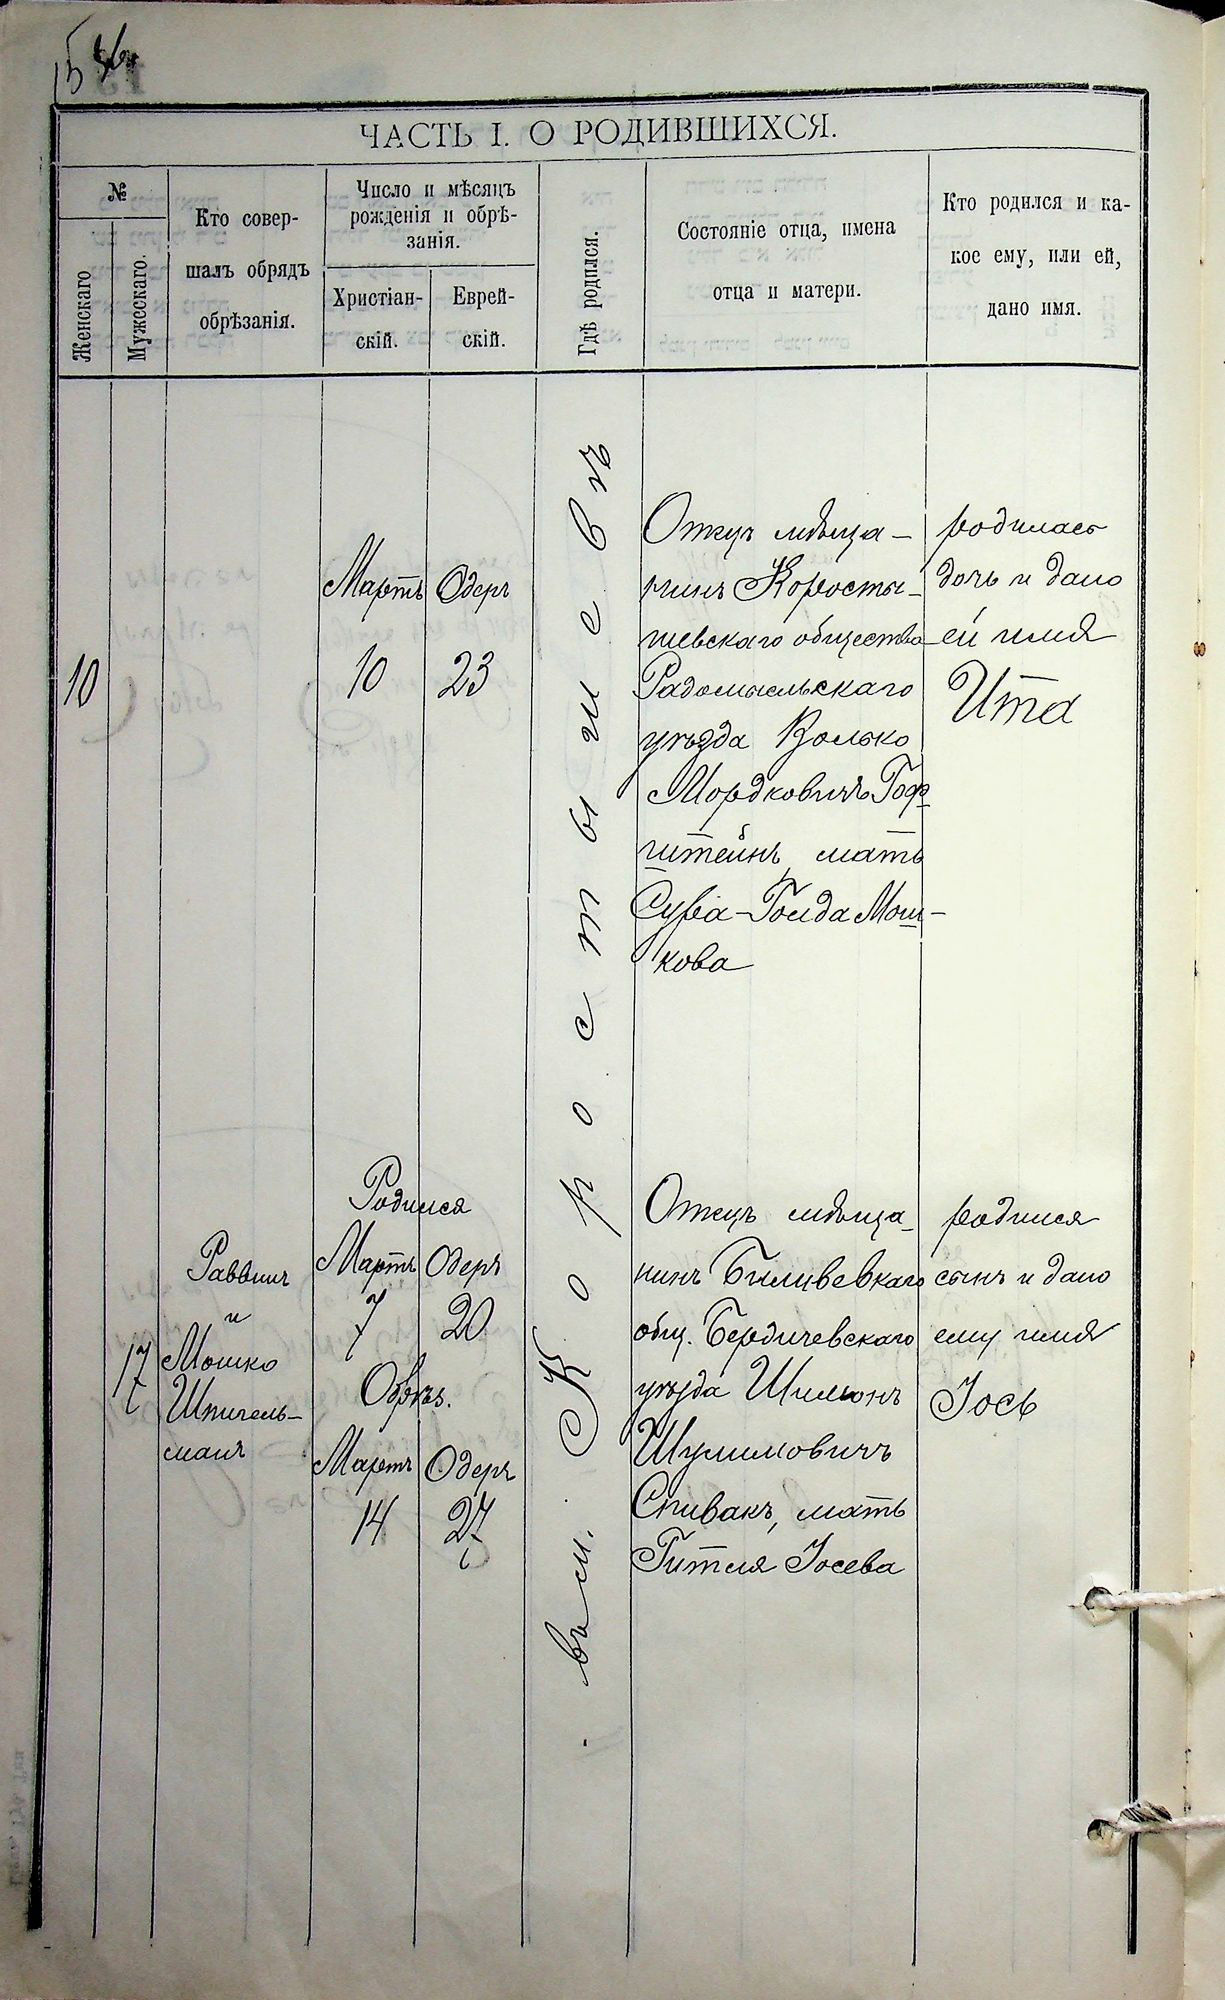 ЧАСТЬ I. О РОДИВШИХСЯ.
№
Женскаго
Мужескаго.
Кто совер-
шалъ обрядъ
обрѣзанія.
Число и мѣсяцъ
рожденія и обрѣ-
занія.
Христіан-
скій.
Еврей-
скій.
Гдѣ родился.
Состояніе отца, имена
отца и матери.
Кто родился и ка-
кое ему, или ей,
дано имя.
въ м. Коростышевѣ
10
Мартъ
10
Одеръ
23
Отецъ мѣща-
нинъ Коросты-
шевскаго общества
Радомысльскаго
уѣзда Волько
Мордковичъ Гоф-
штейнъ, мать
Сура-Голда Мош-
кова
родилась
дочь и дано
ей имя
Ита
17
Раввинъ
и
Мошко
Шпигель-
манъ
Родился
Мартъ
7
Одеръ
20
Обрѣз.
Мартъ
14
Одеръ
27
Отецъ мѣща-
нинъ Биливевкаго
общ. Бердичевскаго
уѣзда Шимонъ
Шулимовичъ
Спивакъ, мать
Гитля Іосева
родился
сынъ и дано
ему имя
Іось